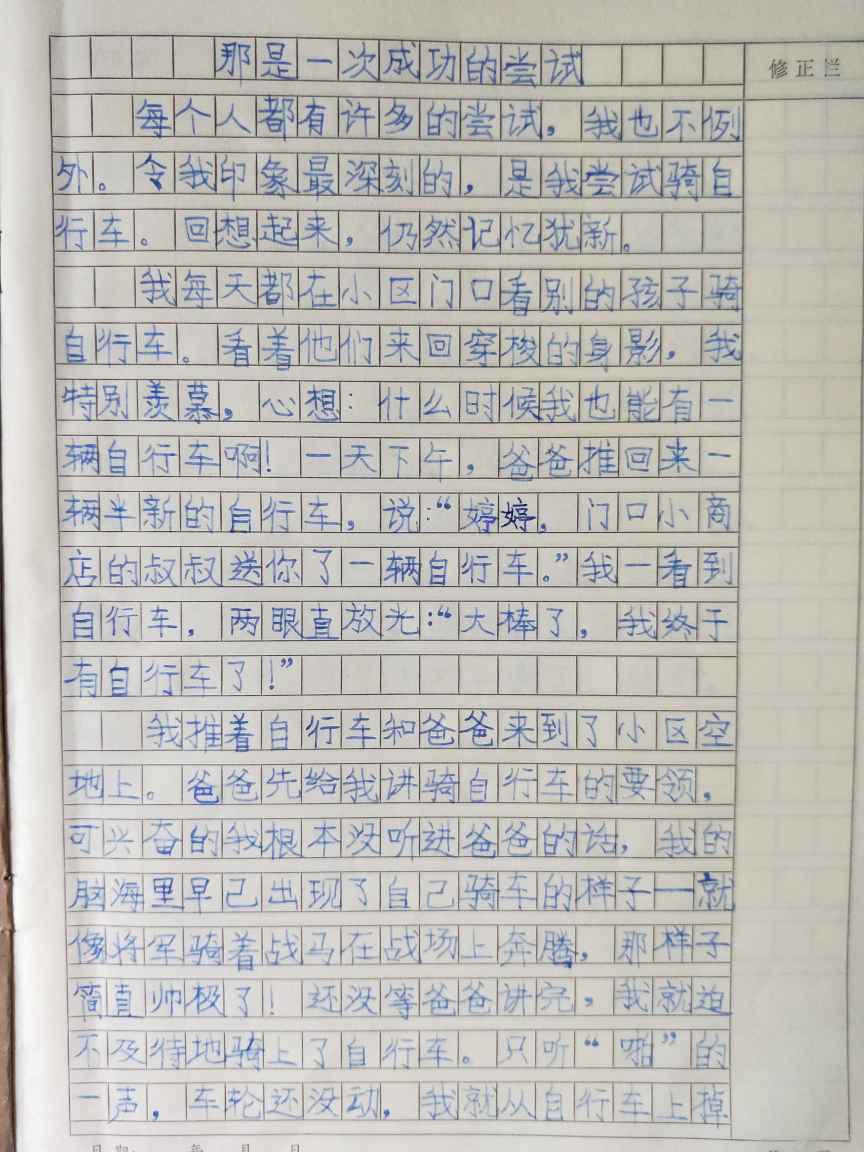 那是一次成功的尝试
修正栏
每个人都有许多的尝试，我也不例
外。令我印象最深刻的，是我尝试骑自
行车。回想起来，仍然记忆犹新。
我每天都在小区门口看别的孩子骑
自行车。看着他们来回穿梭的身影，我
特别羡慕，心想：什么时候我也能有一
辆自行车啊！一天下午，爸爸推回来一
辆半新的自行车，说：“婷婷，门口小商
店的叔叔送你了一辆自行车。”我一看到
自行车，两眼直放光：“大棒了，我终于
有自行车了！”
我推着自行车和爸爸来到了小区空
地上。爸爸先给我讲骑自行车的要领，
可兴奋的我根本没听进爸爸的话，我的
脑海里早已出现了自己骑车的样子—就
像将军骑着战马在战场上奔腾，那样子
简直帅极了！还没等爸爸讲完，我就迫
不及待地骑上了自行车。只听“啪”的
一声，车轮还没动，我就从自行车上掉